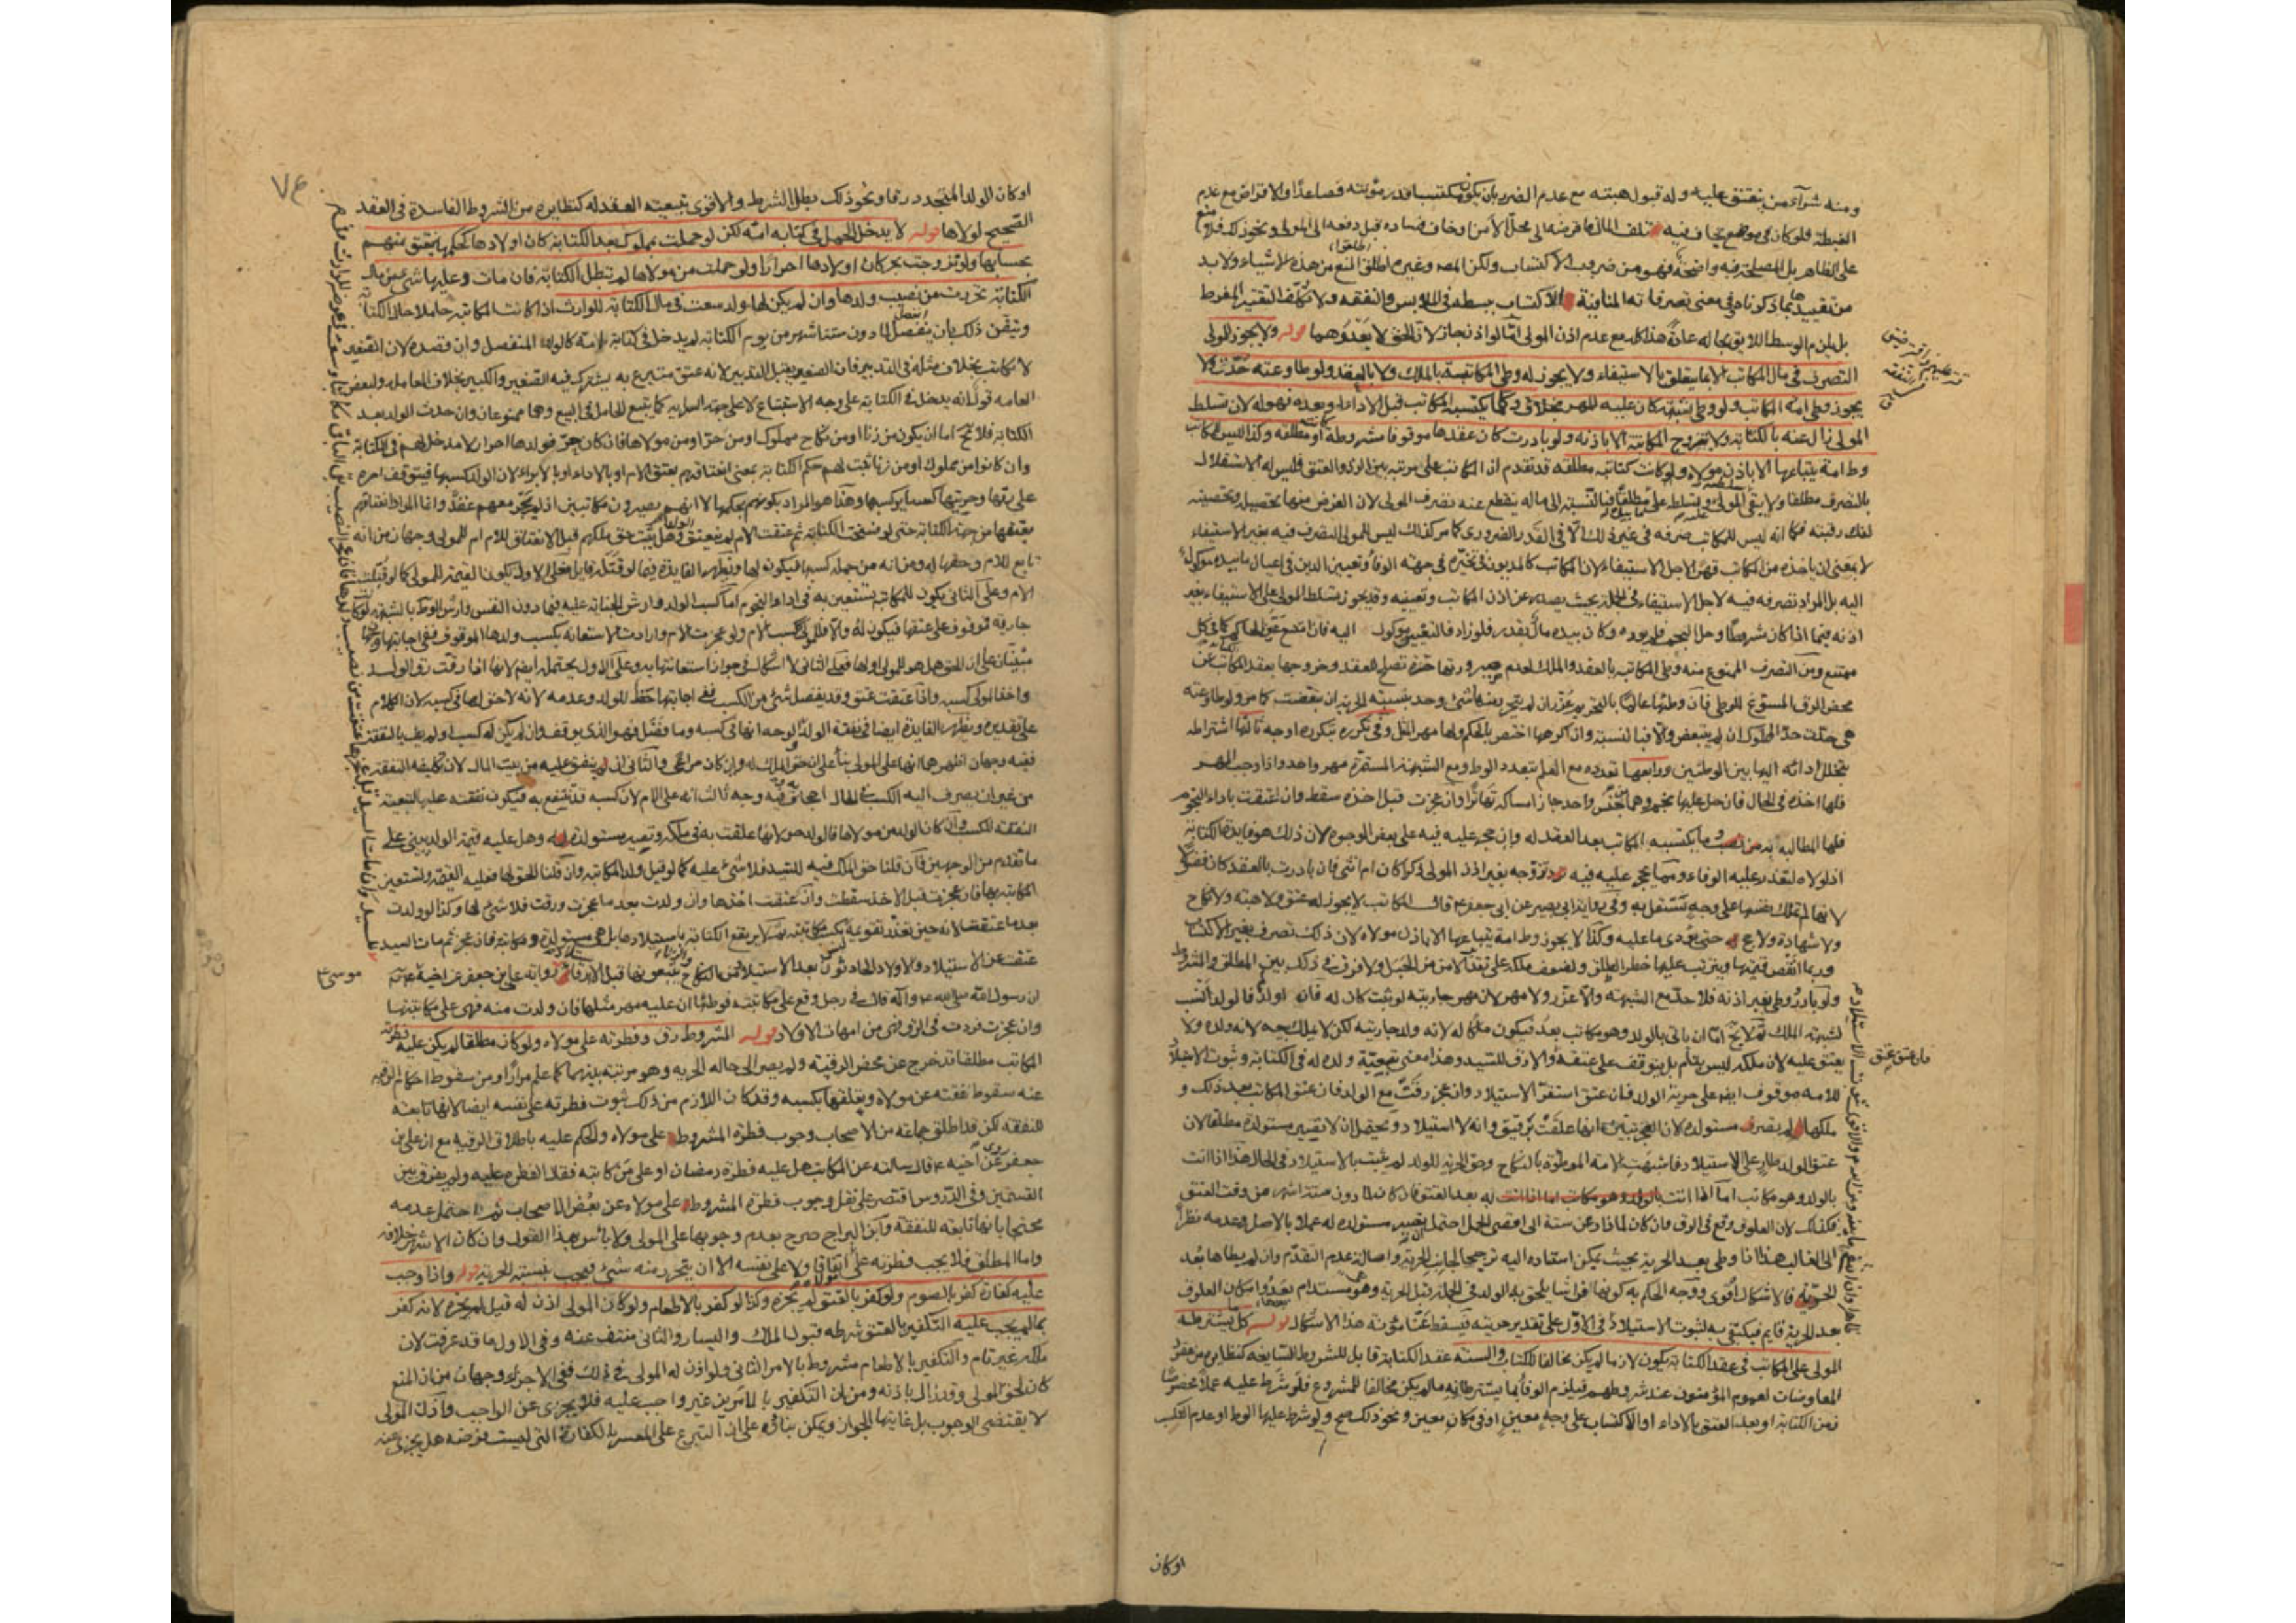 ومنه شراء من ينعتق عليه وله قبول هبته مع عدم الضرر بان يكون مكتسبا قدر مؤنته فصاعدا والاقراض مع عدم
الغبطة فلو كان في موضع يخاف فيه تلف المال فاقرضه الى محل الامن او خاف فساده قبل دفعه الى المولى ونحو ذلك فلا منع
على الظاهر بل المصلحة فيه واضحة فهو من ضروب الاكتساب ولكن المصه وغيره اطلقوا المنع من هذه الاشياء ولا بد
من تقييدها بما ذكرناه وفي معنى تصرفاته المنافية الاكتساب بسطه في الملابس والنفقه ولا نكلف التقتير المفرط
بل يلزم الوسط اللايق بحاله عادة هذا كله مع عدم اذن المولى اما لو اذن جاز لان الحق لا يعدوهما قوله ولا يجوز للمولى
التصرف في مال المكاتب الا بما يتعلق بالاستيفاء ولا يجوز له وطى المكاتبة بالملك ولا بالعقد ولو طاوعته حدت ولا
يجوز وطى امة المكاتب ولو وطى بشبهة كان عليه المهر وكلما يكتسبه المكاتب قبل الاداء او بعده فهو له لان تسلط
المولى زال عنه بالكتابة ولا تتزوج المكاتبة الا باذنه ولو بادرت كان عقدها موقوفا مشروطة كانت او مطلقه وكذا ليس للمكاتب
وط امة يبتاعها الا باذن مولاه ولو كانت كتابته مطلقه قد تقدم ان المكاتب على مرتبة بين الرق والعتق فليس له الاستقلال
بالتصرف مطلقا ولا يبقى للمولى تسلطه عليه مطلقا فبالنسبة الى ماله ينقطع عنه تصرف المولى لان الغرض منها تحصيله وتحصينه
لفك رقبته فكما انه ليس للمكاتب صرفه في غير ذلك الا في القدر الضروري كما مر كذلك ليس للمولى التصرف فيه بغير الاستيفاء
لا بمعنى ان ياخذه من المكاتب قهرا لاجل الاستيفاء لان المكاتب كالمديون في تخيره في جهة الوفاء وتعيين الدين في اعيان ما بيده موكول
اليه بل المراد تصرفه فيه لاجل الاستيفاء في الجملة بحيث يصدر عن اذن المكاتب وتعيينه وقد يجوز تسلط المولى على الاستيفاء بغير
اذنه فيما اذا كان مشروطا وحل النجم فلم يوده وكان بيده مال بقدره فلو زاد فالتعيين موكول اليه فان امتنع عين الحاكم كما في كل
ممتنع ومن التصرف الممنوع منه وطى المكاتبة بالعقد والملك لعدم صيرورتها حرة تصلح للعقد وخروجها بعقد المكاتبة عن
محض الرق المسوغ للوطى فان وطئها عالما بالتحريم عزر ان لم يتحرر منها شئ وحد بنسبة الحرية ان تبعضت كما مر ولو طاوعته
هي حدت حد المملوك ان لم يتبعض والا فبالنسبة وان اكرهها اختص بالحكم ولها مهر المثل وفي تكرره بتكرره اوجه ثالثها اشتراطه
بتخلل ادائه اليها بين الوطئين ورابعها تعدده مع العلم بتعدد الوط ومع الشبهة المستمرة مهر واحد واذا وجب المهر
فلها اخذه في الحال فان حل عليها نجم وهما من جنس واحد جاز امساكه تقاصا وان عجزت قبل اخذه سقط وان اعتقت باداء النجوم
فلها المطالبة به وما يكتسبه المكاتب بعد العقد له وان حجر عليه فيه على بعض الوجوه لان ذلك هو فايدة الكتابة
اذ لولاه لتعذر عليه الوفاء ومما حجر عليه فيه تزوجه بغير اذن المولى ذكرا كان ام انثى فان بادرت بالعقد كان فضوليا
لانها لم تملك بضعها على وجه تستقل به وفي رواية ابي بصير عن ابي جعفر ع قال المكاتب لا يجوز له عتق ولا هبة ولا نكاح
ولا شهادة ولا حج حتى يؤدى ما عليه وكذا لا يجوز وط امة يبتاعها الا باذن مولاه لان ذلك تصرف بغير الاكتساب
وربما انتقص قيمتها ويترتب عليها خطر الطلق ولضعف ملكه على تقدير الامن من الحبل ولا فرق في ذلك بين المطلق والمشروط
ولو بادر وطى بغير اذنه فلا حد مع الشبهة والا عزر ولا مهر لان مهر جاريته لو ثبت كان له فان اولد فالولد نسب
لشبهة الملك ثم لا يخ اما ان ياتي بالولد وهو مكاتب بعد فيكون ملكا له لانه ولد جاريته لكن لا يملك بيعه لانه ولده ولا
ينعتق عليه لان ملكه ليس بتام بل يتوقف على عتقه والا رق للسيد وهذا معنى تبعيته ولده له في الكتابة وثبوت الاستيلاد
للامه موقوف ايضا على حرية الولد فان عتق استقر الاستيلاد وان عجز رقت مع الولد فان عتق المكاتب بعد ذلك و
ملكها لم تصر مستولده لان العجز تبين انها علقت برقيق وانه لا استيلاد ويحتمل ان لا تصير مستولده مطلقا لان
عتق الولد طار على الاستيلاد فاشبهت الامة الموطوءة بالنكاح وحق الحرية للولد لم يثبت بالاستيلاد في الحال هذا اذا اتت
بالولد وهو مكاتب اما اذا اتت به بعد العتق فان كان لما دون ستة اشهر من وقت العتق
فكذلك لان العلوق وقع في الرق وان كان لما زاد عن ستة الى اقصى الحمل احتمل ان تصير مستولده له عملا بالاصل وعدمه نظرا
الى الغالب هذا اذا وطى بعد الحرية بحيث يمكن استناده اليه ترجيحا لجانب الحرية واصالة عدم التقدم وان لم يطاها بعد
الحرية فالاشكال اقوى ووجه الحكم به كونها فراشا يلحق به الولد في الجملة قبل الحرية وهو مستدام بعدها وامكان العلوق
بعد الحرية قايم فيكتفى به لثبوت الاستيلاد وفي الاول على تقدير حريته فيسقط عنا مؤنة هذا الاشكال قوله كل ما يشترطه
المولى على المكاتب في عقد الكتابة يكون لازما لم يكن مخالفا للكتاب والسنه عقد الكتابة قابل للشروط السايغه كنظايره من عقود
المعاوضات لعموم المؤمنون عند شروطهم فيلزم الوفاء بما يشترطانه ما لم يكن مخالفا للمشروع فلو شرط عليه عملا مخصوصا
زمن الكتابة او بعد العتق بالاداء او الاكتساب على وجه معين او في مكان معين ونحو ذلك صح ولو شرط عليها الوط او عدم التكسب
اوكان
او كان الولد المتجدد رقا ونحو ذلك بطل الشرط والاقوى تبعية العقد له كنظايره من الشروط الفاسدة في العقد
الصحيح لولاها قوله لا يدخل الحمل في كتابة امه لكن لو حملت بمملوك بعد الكتابة كان اولادها كحكمها ينعتق منهم
بحسابها ولو تزوجت بحر كان اولادها احرارا ولو حملت من مولاها لم تبطل الكتابة فان مات وعليها شئ من مال
الكتابة تحررت من نصيب ولدها وان لم يكن لها ولد سعت في مال الكتابة للوارث اذا كانت المكاتبة حاملا حال الكتابة
وتيقن ذلك بان ينفصل لما دون ستة اشهر من يوم الكتابة لم يدخل في كتابة امه كالولد المنفصل وان قصده لان الصغير
لا يكاتب بخلاف مثله في التدبير فان الصغير يقبل التدبير لانه عتق متبرع به يشترك فيه الصغير والكبير بخلاف المعامله ولبعض
العامه قول انه يدخل في الكتابة على وجه الاستتباع لا على جهة السراية كما يتبع الحامل في البيع وهما ممنوعان وان حدث الولد بعد
الكتابة فلا يخ اما ان يكون من زنا او من نكاح مملوك او من حر او من مولاها فان كان من حر فولدها احرار لا مدخل لهم في الكتابة
وان كانوا من مملوك او من زنا ثبت لهم حكم الكتابة بمعنى انعتاقهم بعتق الام او بالاداء او بالابراء لان الولد كسبها فيتوقف امره
على رقها وحريتها كساير كسبها وهذا هو المراد بكونهم بحكمها لا انهم يصيرون مكاتبين اذ لم يجر معهم عقد وانما المراد انعتاقهم
بعتقها من جهة الكتابة حتى لو فسخت الكتابة ثم عتقت الام لم ينعتق الولد وهل يثبت حق ملكهم قبل الانعتاق للام ام للمولى وجهان من انه
تابع للام وحقها له ومن انه من جملة كسبها فيكون لها وتظهر الفايدة فيما لو قتله قاتل فعلى الاول يكون القيمة للمولى كما لو قتلت
الام وعلى الثاني يكون للمكاتبة تستعين به في اداء النجوم اما كسب الولد وارش الجناية عليه فيما دون النفس وارش الوط بالشبهة لو كانت
جارية فموقوف على عتقها فيكون له والا فللمولى ككسب الام ولو عجزت الام وارادت الاستعانة بكسب ولدها الموقوف ففي اجابتها وجهان
مبنيان على ان الحق هل هو للمولى او لها فعلى الثاني لا اشكال في جواز استعانتها به وعلى الاول يحتمله ايضا لانها اذا رقت رق الولد
واخذ المولى كسبه واذا عتقت عتق وقد يفضل شئ من الكسب ففي اجابتها حظ للولد وعدمه لانه لا حق لها في كسبه لان الكلام
على تقديره وتظهر الفايدة ايضا في نفقة الولد والوجه انها في كسبه وما فضل فهو الذي يوقف وان لم يكن له كسب او لم يف بالنفقة
ففيه وجهان اظهرهما انها على المولى بناء على ان حق الملك له وان كان مراعى والثاني ان ينفق عليه من بيت المال لان تكليفه النفقة
من غير ان يصرف اليه الكسب في الحال اجحاف به وفيه وجه ثالث انه على الام لان كسبه قد تنتفع به فيكون نفقته عليها لتبعية
النفقة للكسب وان كان الولد من مولاها فالولد حر لانها علقت به في ملكه وتصير مستولدة له وهل عليه قيمة الولد يبنى على
ما تقدم من الوجهين فان قلنا حق الملك فيه للسيد فلا شئ عليه كما لو قتل ولد المكاتبة وان قلنا الحق لها فعليه القيمة وتستعين
المكاتبة بها فان عجزت قبل الاخذ سقطت وان عتقت اخذها وان ولدت بعد ما عجزت ورقت فلا شئ لها وكذا لو ولدت
بعد ما عتقت لانه حين تعذر تقويمه ليس بمكاتبته ثم لا يرتفع الكتابة باستيلادها بل هي مستولدة ومكاتبة فان عجزت ثم مات السيد
عتقت عن الاستيلاد والاولاد الحادثون بعد الاستيلاد من النكاح يتبعونها قبل الاستيلاد رواية علي بن جعفر عن اخيه عن ابائه
موسى ع
ان رسول الله صلى الله عليه واله قال في رجل وقع على مكاتبته فوطئها ان عليه مهر مثلها فان ولدت منه فهى على مكاتبتها
وان عجزت فردت في الرق فهى من امهات الاولاد قوله المشروط رق وفطرته على مولاه ولو كان مطلقا لم يكن عليه فطرته
المكاتب مطلقا قد خرج عن محض الرقية ولم يصر الى حالة الحرية وهو مرتبة بينهما كما علم مرارا ومن سقوط احكام الرقية
عنه سقوط نفقته عن مولاه وتعلقها بكسبه وقد كان اللازم من ذلك ثبوت فطرته على نفسه ايضا لانها تابعة
للنفقه لكن قد اطلق جماعة من الاصحاب وجوب فطرة المشروط على مولاه والحكم عليه باطلاق الرقية مع ان علي بن
جعفر روى عن اخيه ع قال سالته عن المكاتب هل عليه فطرة رمضان او على من كاتبه فقال الفطرة عليه ولم يفرق بين
القسمين وفي الدروس اقتصر على نقل وجوب فطرة المشروط على مولاه عن بعض الاصحاب ثم احتمل عدمه
محتجا بانها تابعة للنفقة وابن البراج صرح بعدم وجوبها على المولى ولا باس بهذا القول وان كان الاشهر خلافه
واما المطلق فلا يجب فطرته على مولاه اتفاقا ولا على نفسه الا ان يتحرر منه شئ فيجب بنسبة الحرية قوله واذا وجب
عليه كفارة كفر بالصوم ولو كفر بالعتق لم يجزه وكذا لو كفر بالاطعام ولو كان المولى اذن له قيل لم يجزه لانه كفر
بما لم يجب عليه التكفير بالعتق شرطه قبول الملك واليسار والثاني منتف عنه وفي الاول ما قد عرفت لان
ملكه غير تام والتكفير بالاطعام مشروط بالامر الثاني ولو اذن له المولى في ذلك ففي الاجزاء وجهان من ان المنع
كان لحق المولى وقد زال باذنه ومن ان التكفير بالامرين غير واجب عليه فلا يجزى عن الواجب واذن المولى
لا يقتضي الوجوب بل غايتها الجواز ويمكن بناؤه على ان التبرع على المعسر بالكفارة التي ليست فرضه هل يجزى عنه